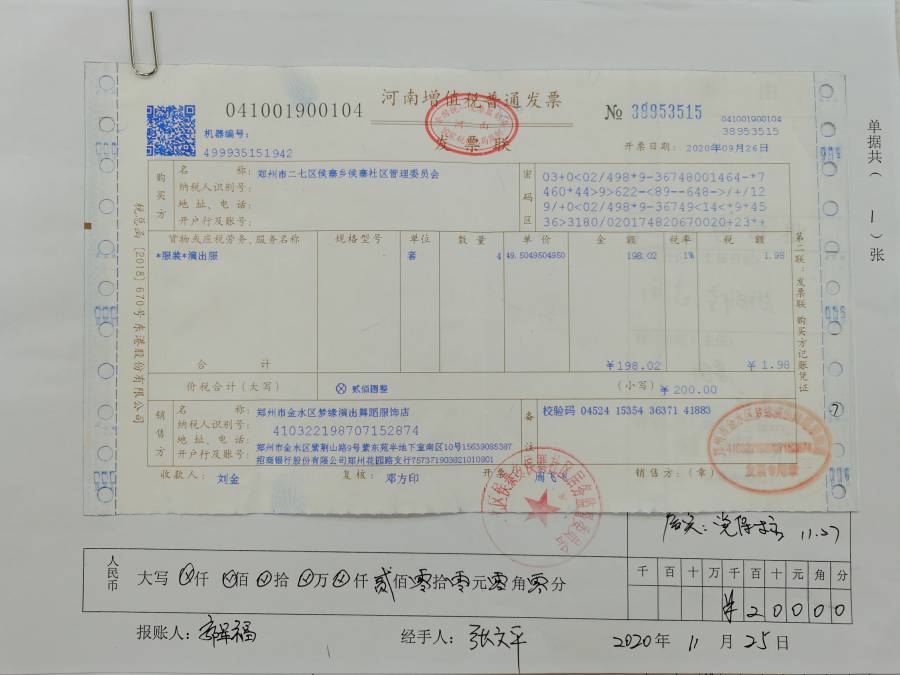 041001900104
河南增值税普通发票
发票联
№ 38953515
041001900104
38953515
机器编号:
499935151942
开票日期: 2020年09月26日
单据共(1)张
税总函〔2018〕670号东港股份有限公司
购买方
名称: 郑州市二七区侯寨乡侯寨社区管理委员会
纳税人识别号:
地址、电话:
开户行及账号:
密码区
03+0<02/498*9-36748001464-*7
460*44>9>622-<89--648->/+/12
9/+0<02/498*9-36749<14<*9*45
36>3180/020174820670020+23*+
货物或应税劳务、服务名称 规格型号 单位 数量 单价 金额 税率 税额
*服装*演出服 套 4 49.5049504950 198.02 1% 1.98
合计 ¥198.02 ¥1.98
价税合计(大写) ⊗贰佰圆整 (小写) ¥200.00
第二联:发票联 购买方记账凭证
销售方
名称: 郑州市金水区梦缘演出舞蹈服饰店
纳税人识别号: 410322198707152874
地址、电话: 郑州市金水区紫荆山路9号紫东苑半地下室南区10号15639085387
开户行及账号: 招商银行股份有限公司郑州花园路支行757371903821010901
备注
校验码 04524 15354 36371 41883
收款人: 刘金 复核: 邓方印 开票 周飞 销售方:(章)
发票专用章
11.27
人民币
大写 仟 佰 拾 万 仟 贰佰零拾零元零角零分
千 百 十 万 千 百 十 元 角 分
¥ 2 0 0 0 0
报账人: 经手人: 张文平 2020年 11月 25日